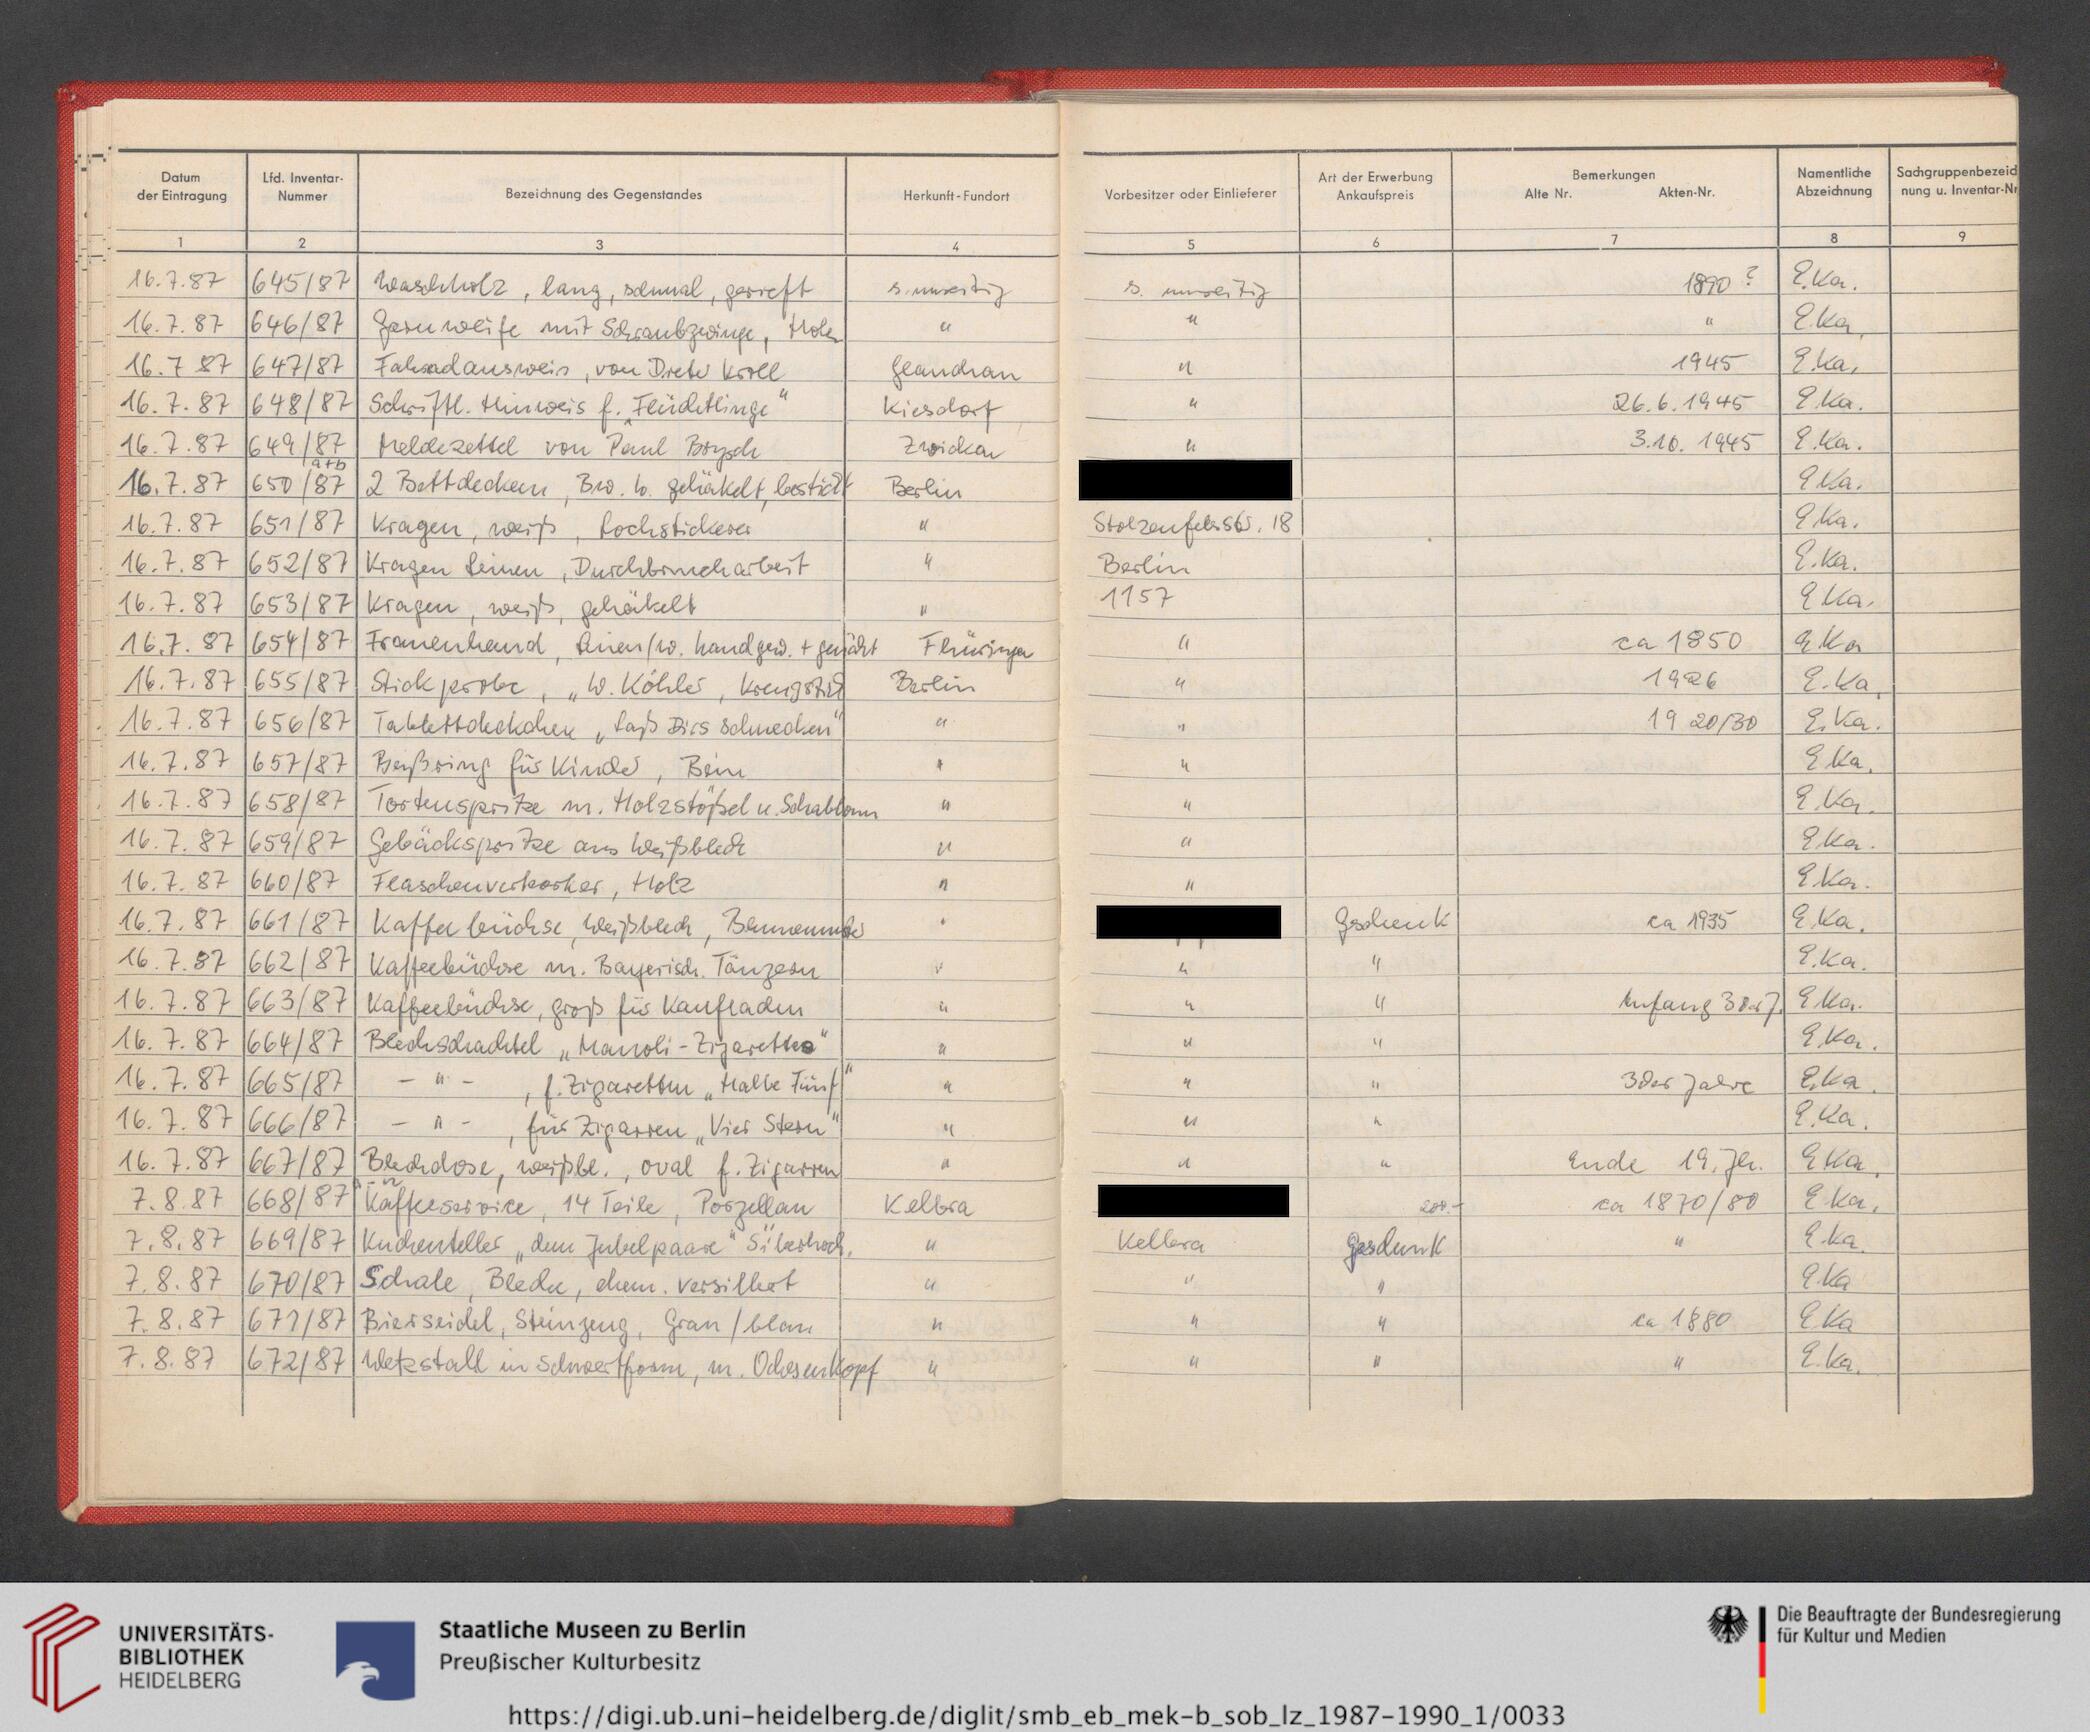 Datum der Eintragung | Lfd. Inventar-Nummer | Bezeichnung des Gegenstandes | Herkunft-Fundort | Vorbesitzer oder Einlieferer | Art der Erwerbung Ankaufspreis | Bemerkungen Alte Nr. Akten-Nr. | Namentliche Abzeichnung | Sachgruppenbezeich nung u. Inventar-Nr
1 2 3 4 5 6 7 8 9
16.7.87 645/87 Waschholz, lang, schmal, gerieft s. umseitig s. umseitig 1890? E.Ka.
16.7.87 646/87 Garnweife mit Schraubzwinge, Holz " " " E.Ka.
16.7.87 647/87 Fahrradausweis, von Dieter Kroll Glauchau " 1945 E.Ka.
16.7.87 648/87 Schriftl. Hinweis f. Flüchtlinge" Kiesdorf " 26.6.1945 E.Ka.
16.7.87 649/87 Meldezettel von Paul Zwickau " 3.10.1945 E.Ka.
16.7.87 650/87 a+b 2 Bettdecken, Bw. w. gehäkelt, bestickt Berlin E.Ka.
16.7.87 651/87 Kragen, weiß, Lochstickerei " Stolzenfelsstr. 18 E.Ka.
16.7.87 652/87 Kragen Leinen, Durchbrucharbeit " Berlin E.Ka.
16.7.87 653/87 Kragen, weiß, gehäkelt " 1157 E.Ka.
16.7.87 654/87 Frauenhemd, Leinen/w. handgew. + genäht Thüringen " ca 1850 E.Ka
16.7.87 655/87 Stickprobe, „W. Köhler, Kreuzstich Berlin " 1926 E.Ka.
16.7.87 656/87 Tablettdeckchen „Laß Dirs schmecken" " " 1920/30 E.Ka.
16.7.87 657/87 Beißring für Kinder, Bein " " E.Ka.
16.7.87 658/87 Tortenspritze m. Holzstößel u. Schablonen " " E.Ka.
16.7.87 659/87 Gebäckspritze aus Weißblech " " E.Ka.
16.7.87 660/87 Flaschenverkorker, Holz " " E.Ka.
16.7.87 661/87 Kaffeebüchse, Weißblech, Blumenmuster " Geschenk ca 1935 E.Ka.
16.7.87 662/87 Kaffeebüchse m. Bayerisch. Tänzern " " " E.Ka.
16.7.87 663/87 Kaffeebüchse, groß für Kaufladen " " " Anfang 30er J. E.Ka.
16.7.87 664/87 Blechschachtel „Manoli-Zigaretten" " " " E.Ka.
16.7.87 665/87 - " - , f. Zigaretten „Halbe Fünf" " " " 30er Jahre E.Ka.
16.7.87 666/87 - " - , für Zigarren „Vier Stern" " " " E.Ka.
16.7.87 667/87 Blechdose, weißbl., oval f. Zigarren " " " Ende 19. Jh. E.Ka.
7.8.87 668/87 a-n Kaffeeservice, 14 Teile, Porzellan Kelbra 200.- ca 1870/80 E.Ka.
7.8.87 669/87 Kuchenteller „dem Jubelpaare" Silberhoch. " Kelbra Geschenk " E.Ka.
7.8.87 670/87 Schale, Blech, chem. versilbert " " " E.Ka
7.8.87 671/87 Bierseidel, Steinzeug, Grau/blau " " " ca 1880 E.Ka
7.8.87 672/87 Wetzstahl in Schwertform, m. Ochsenkopf " " " " E.Ka.
UNIVERSITÄTS-
BIBLIOTHEK
HEIDELBERG
Staatliche Museen zu Berlin
Preußischer Kulturbesitz
Die Beauftragte der Bundesregierung
für Kultur und Medien
https://digi.ub.uni-heidelberg.de/diglit/smb_eb_mek-b_sob_lz_1987-1990_1/0033